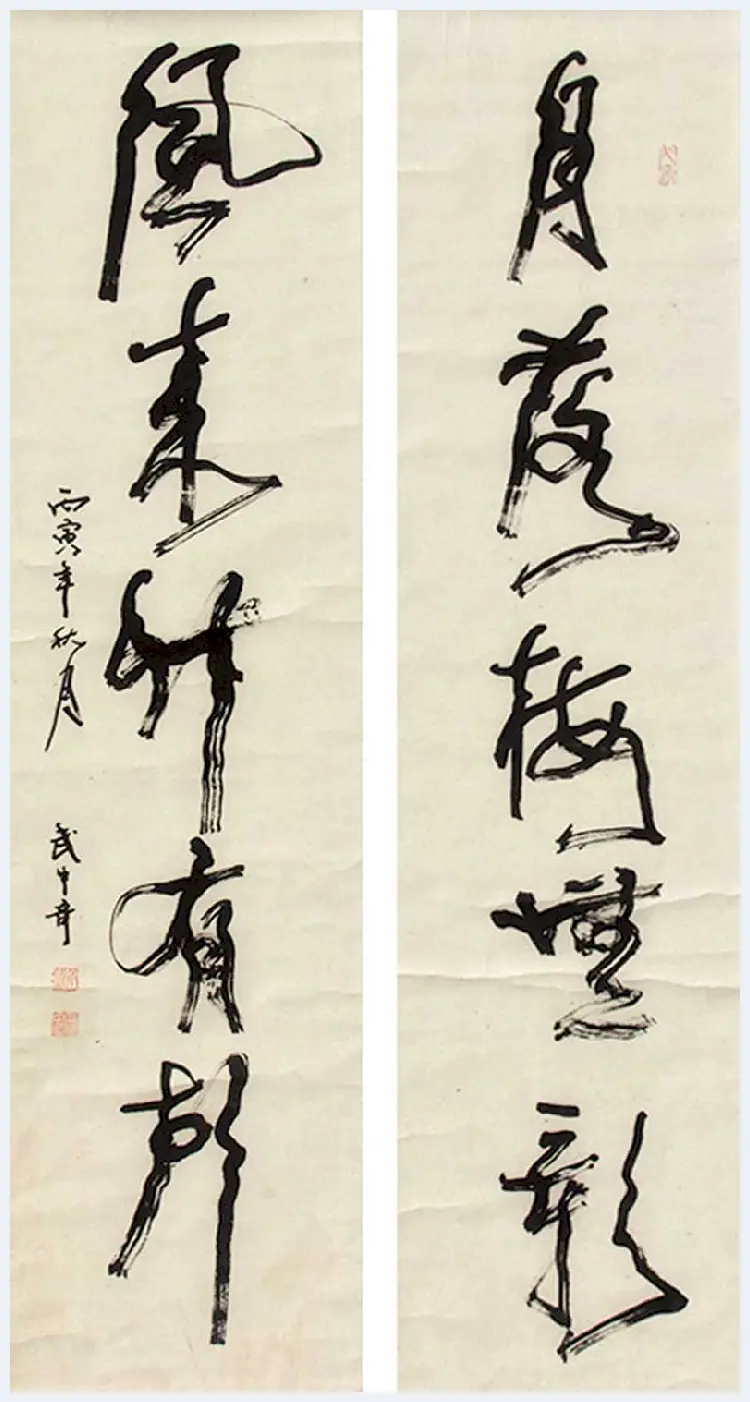 月落梅無影
風來竹有聲
丙寅年秋月
武中奇